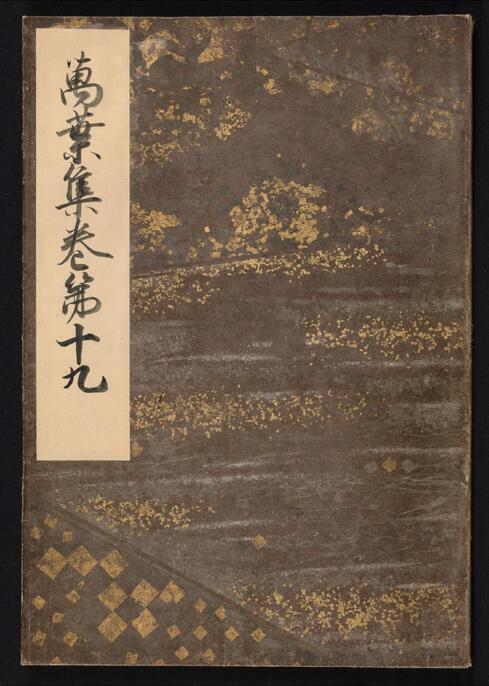 萬葉集巻第十九